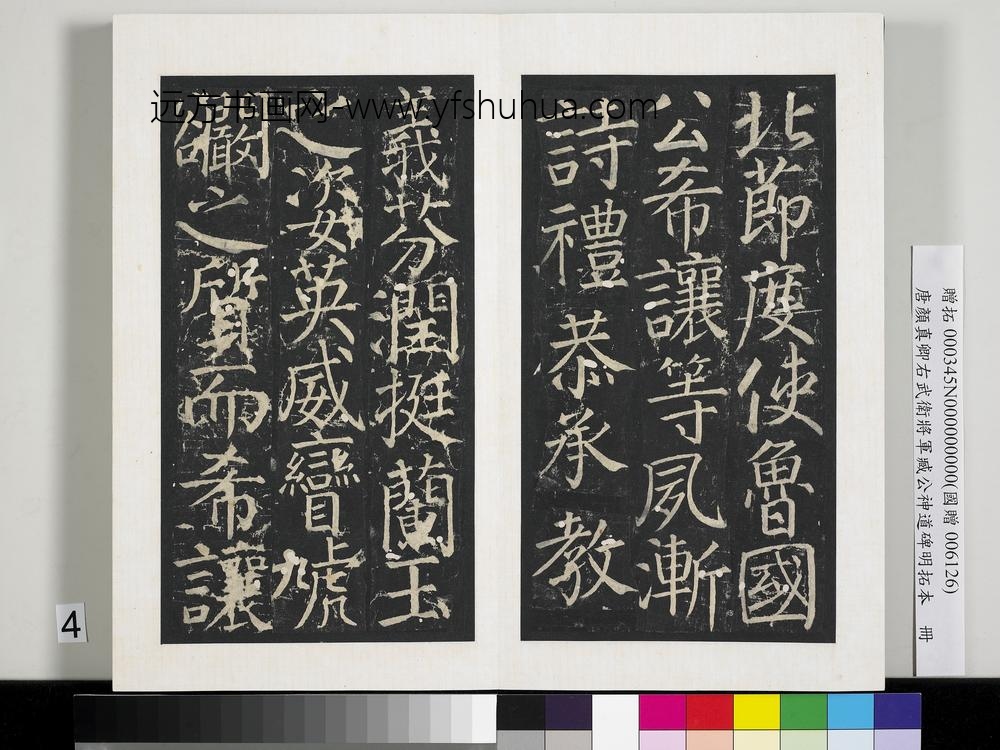 远方书画网-www.yfshuhua.com
北節度使魯國
公希讓等夙漸
詩禮恭承教
義芬潤挺蘭玉
之姿英威矕虓
闞之質而希讓
贈拓 000345N000000000(國贈 006126)
唐顏真卿右武衛將軍臧公神道碑明拓本 冊
4